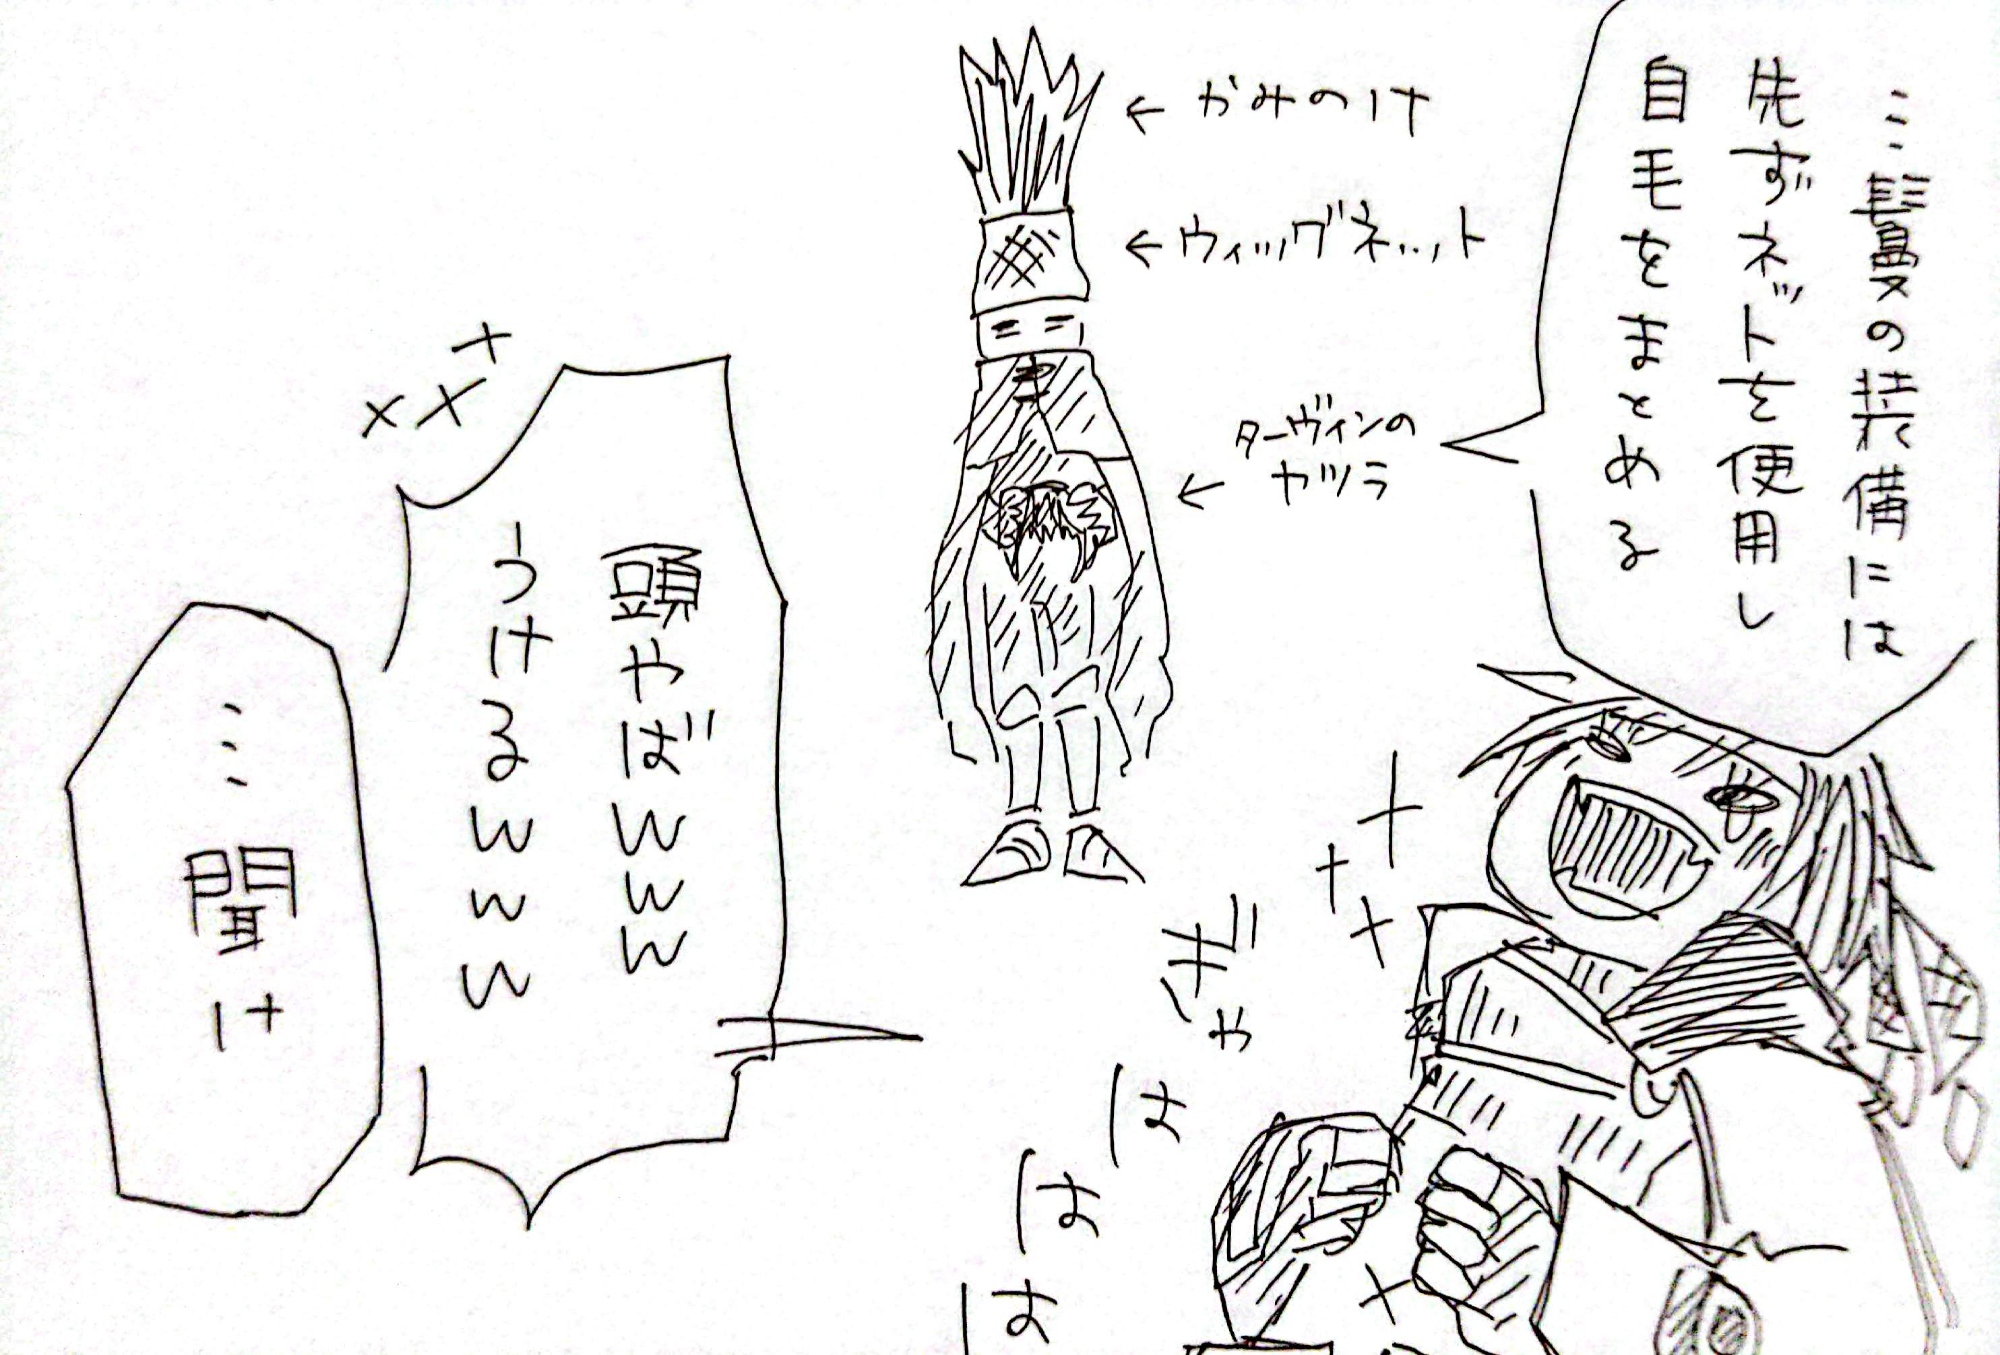 …鬘の装備には
先ずネットを使用し
自毛をまとめる
←かみのけ
←ウィッグネット
←ターヴィンの
カツラ
頭やばwww
うけるwww
…聞け
ぎゃ
は
は
は